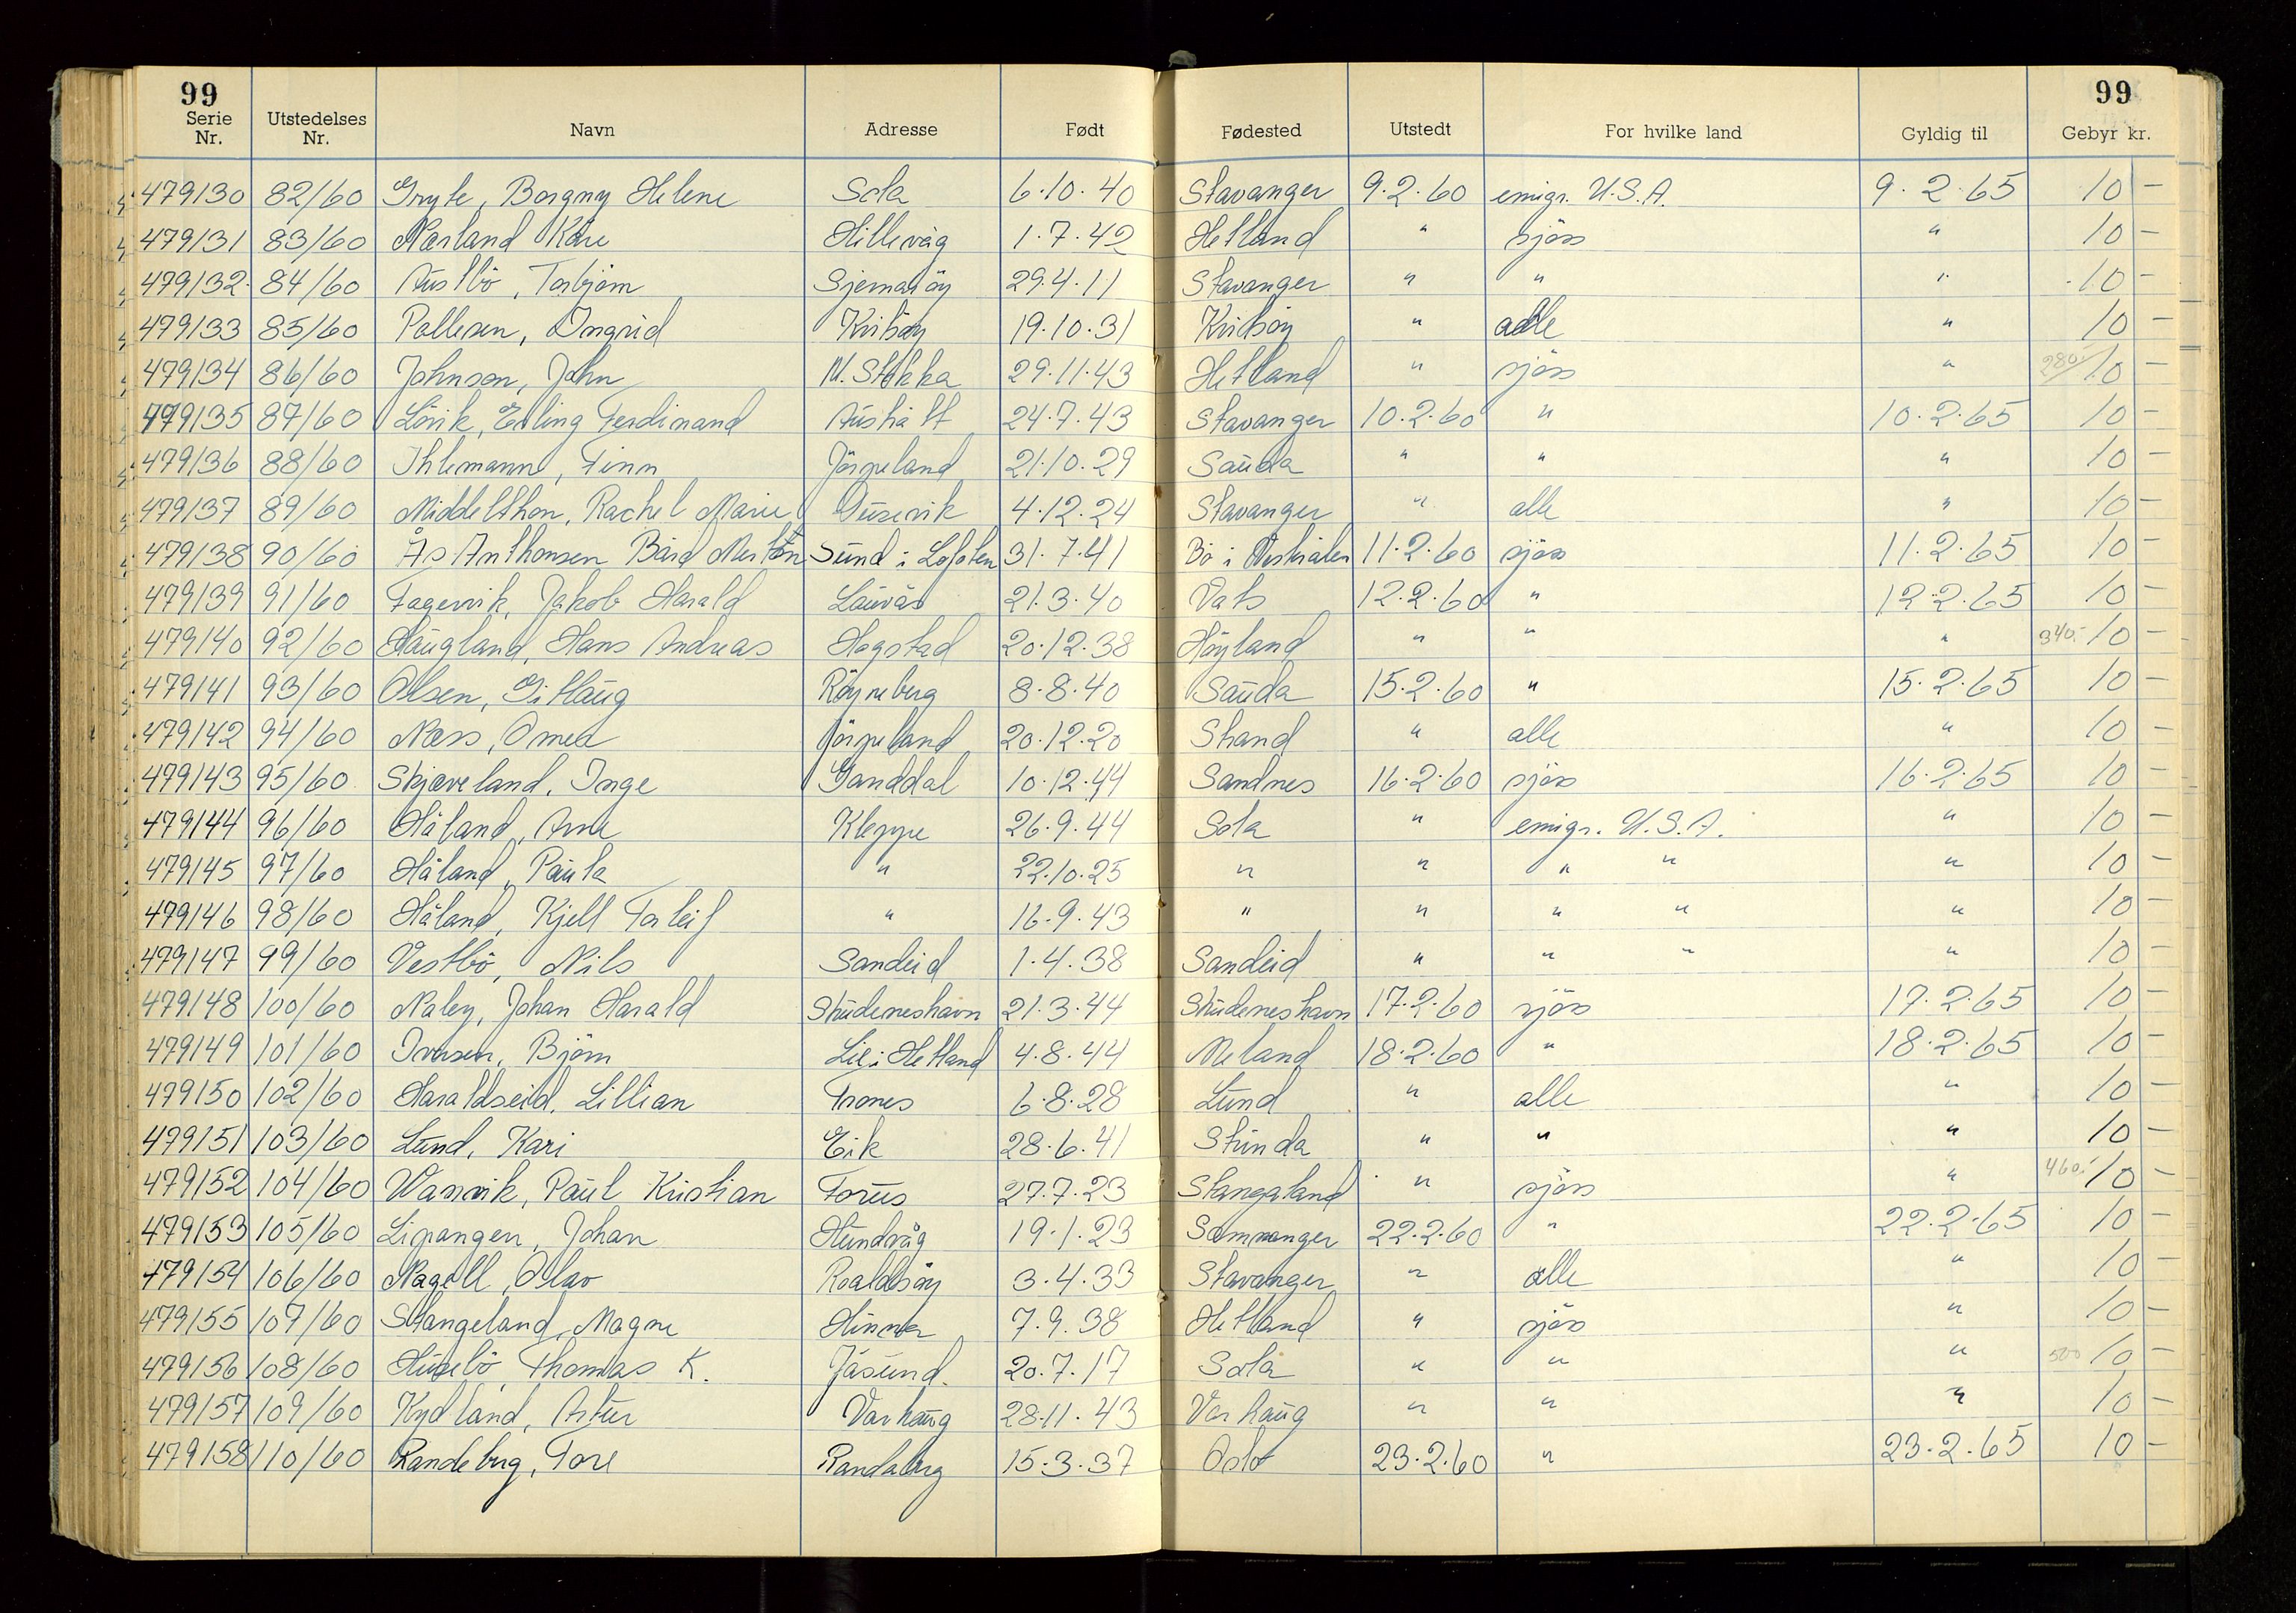 99 99
Serie Nr. Utstedelses Nr. Navn Adresse Født Fødested Utstedt For hvilke land Gyldig til Gebyr kr.
479130 82/60 Gryte, Borgny Helene Sola 6.10.40 Stavanger 9.2.60 emigr. U.S.A. 9.2.65 10 –
479131 83/60 Nærland Kåre Hillevåg 1.7.42 Hetland " sjöss " 10 –
479132 84/60 Austbö, Torbjörn Sjernaröy 29.4.11 Stavanger " " " 10 –
479133 85/60 Pallesen, Ingrid Kvitsöy 19.10.31 Kvitsöy " alle " 10 –
479134 86/60 Johnsen, John M. Stokka 29.11.43 Hetland " sjöss " 280.- 10 –
479135 87/60 Lövik, Erling Ferdinand Austrått 24.7.43 Stavanger 10.2.60 " 10.2.65 10 –
479136 88/60 Ihlemann, Finn Jörpeland 21.10.29 Sauda " " " 10 –
479137 89/60 Middelthon, Rachel Marie Dusevik 4.12.24 Stavanger " alle " 10 –
479138 90/60 Ås Anthonsen Bård Morton Sund i Lofoten 31.7.41 Bö i Vesterålen 11.2.60 sjöss 11.2.65 10 –
479139 91/60 Fagervik, Jakob Harald Lauvås 21.3.40 Vats 12.2.60 " 12.2.65 10 –
479140 92/60 Haugland, Hans Andreas Hogstad 20.12.38 Höyland " " " 340.- 10 –
479141 93/60 Olsen, Gitlaug Röyneberg 8.8.40 Sauda 15.2.60 " 15.2.65 10 –
479142 94/60 Næss, Omea Jörpeland 20.12.20 Strand " alle " 10 –
479143 95/60 Skjæveland, Inge Ganddal 10.12.44 Sandnes 16.2.60 sjöss 16.2.65 10 –
479144 96/60 Håland, Arne Kleppe 26.9.44 Sola " emigr. U.S.A. " 10 –
479145 97/60 Håland, Paula " 22.10.25 " " " " " 10 –
479146 98/60 Håland, Kjell Torleif " 16.9.43 " " " " " 10 –
479147 99/60 Vestbö, Nils Sandeid 1.4.38 Sandeid " " " " 10 –
479148 100/60 Naley, Johan Harald Skudeneshavn 21.3.44 Skudeneshavn 17.2.60 sjöss 17.2.65 10 –
479149 101/60 Iversen, Björn Lie i Hetland 4.8.44 Meland 18.2.60 " 18.2.65 10 –
479150 102/60 Haraldseid, Lillian Trones 6.8.28 Lund " alle " 10 –
479151 103/60 Lund, Kari Eik 28.6.41 Strinda " " " 10 –
479152 104/60 Wasvik, Paul Kristian Forus 27.7.23 Stangaland " sjöss " 460.- 10 –
479153 105/60 Lipangen, Johan Hundvåg 19.1.23 Samnanger 22.2.60 " 22.2.65 10 –
479154 106/60 Nagell, Olav Roaldsöy 3.4.33 Stavanger " alle " 10 –
479155 107/60 Stangeland, Magne Hinna 7.9.38 Hetland " sjöss " 10 –
479156 108/60 Husebö Thomas K. Jåsund. 20.7.17 Sola " " " 500 10 –
479157 109/60 Kydland, Artur Varhaug 28.11.43 Varhaug " " " 10 –
479158 110/60 Randeberg, Tore Randaberg 15.3.37 Oslo 23.2.60 " 23.2.65 10 –